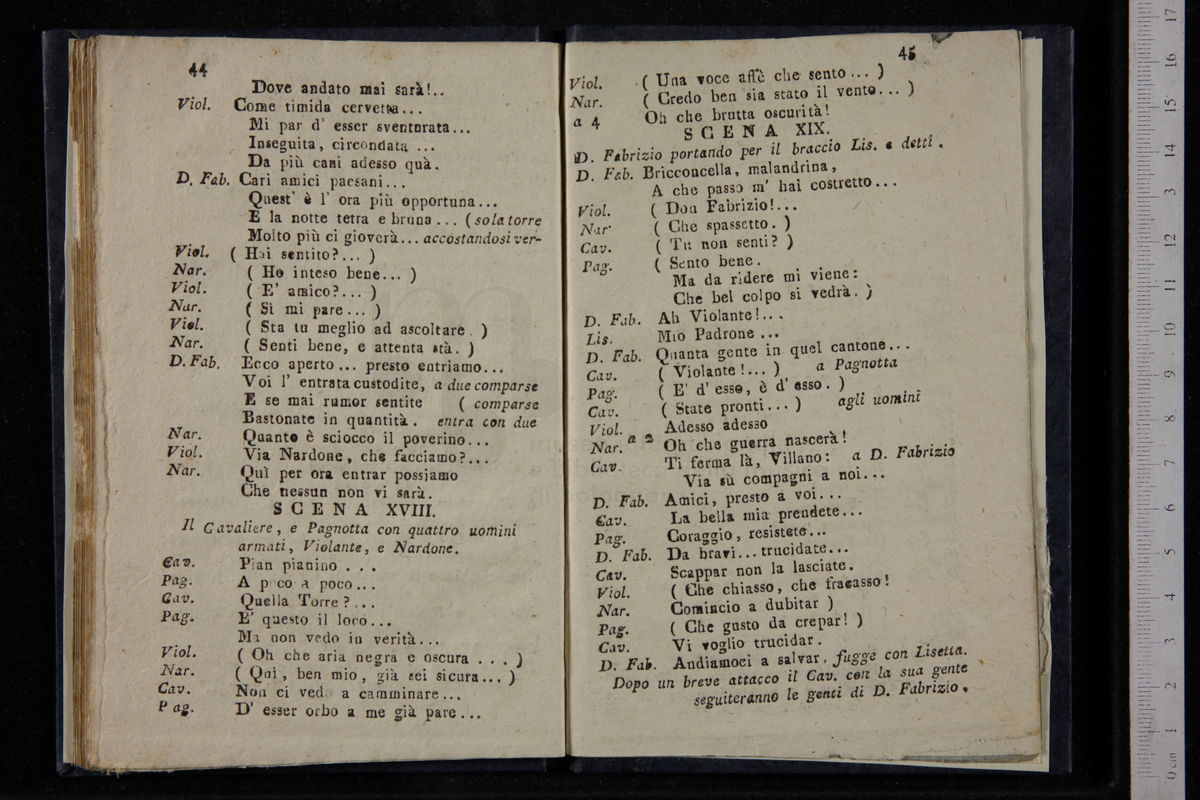 44
Dove andato mai sarà!..
Viol. Come timida cervetta...
Mi par d' esser sventurata...
Inseguita, circondata ...
Da più cani adesso quà.
D. Fab. Cari amici paesani...
Quest' è l' ora più opportuna...
E la notte tetra e bruna... ( sola torre
Molto più ci gioverà... accostandosi ver-
Viol. ( Hai sentito?... )
Nar. ( Ho inteso bene... )
Viol. ( E' amico?... )
Nar. ( Sì mi pare... )
Viol. ( Sta tu meglio ad ascoltare. )
Nar. ( Senti bene, e attenta stà. )
D. Fab. Ecco aperto... presto entriamo...
Voi l' entrata custodite, a due comparse
E se mai rumor sentite ( comparse
Bastonate in quantità. entra con due
Nar. Quanto è sciocco il poverino...
Viol. Via Nardone, che facciamo?...
Nar. Quì per ora entrar possiamo
Che nessun non vi sarà.
SCENA XVIII.
Il Cavaliere, e Pagnotta con quattro uomini
armati, Violante, e Nardone.
Cav. Pian pianino . . .
Pag. A poco a poco...
Cav. Quella Torre?...
Pag. E' questo il loco...
Ma non vedo in verità...
Viol. ( Oh che aria negra e oscura . . . )
Nar. ( Qui, ben mio, già sei sicura... )
Cav. Non ci vedo a camminare...
Pag. D' esser orbo a me già pare...
45
Viol. ( Una voce affè che sento... )
Nar. ( Credo ben sia stato il vento... )
a 4 Oh che brutta oscurità!
SCENA XIX.
D. Fabrizio portando per il braccio Lis. e detti.
D. Fab. Bricconcella, malandrina,
A che passo m' hai costretto...
Viol. ( Don Fabrizio!...
Nar ( Che spassetto. )
Cav. ( Tu non senti? )
Pag. ( Sento bene.
Ma da ridere mi viene:
Che bel colpo si vedrà. )
D. Fab. Ah Violante!...
Lis. Mio Padrone ...
D. Fab. Quanta gente in quel cantone...
Cav. ( Violante!... ) a Pagnotta
Pag. ( E' d' esso, è d' esso. )
Cav. ( State pronti... ) agli uomini
Viol. Adesso adesso
Nar. a 2 Oh che guerra nascerà!
Cav. Ti ferma là, Villano: a D. Fabrizio
Via sù compagni a noi...
D. Fab. Amici, presto a voi...
Cav. La bella mia prendete...
Pag. Coraggio, resistete...
D. Fab. Da bravi... trucidate...
Cav. Scappar non la lasciate.
Viol. ( Che chiasso, che fracasso!
Nar. Comincio a dubitar )
Pag. ( Che gusto da crepar! )
Cav. Vi voglio trucidar.
D. Fab. Andiamoci a salvar. fugge con Lisetta.
Dopo un breve attacco il Cav. con la sua gente
seguiteranno le genti di D. Fabrizio.
0 cm 1 2 3 4 5 6 7 8 9 10 11 12 13 14 15 16 17